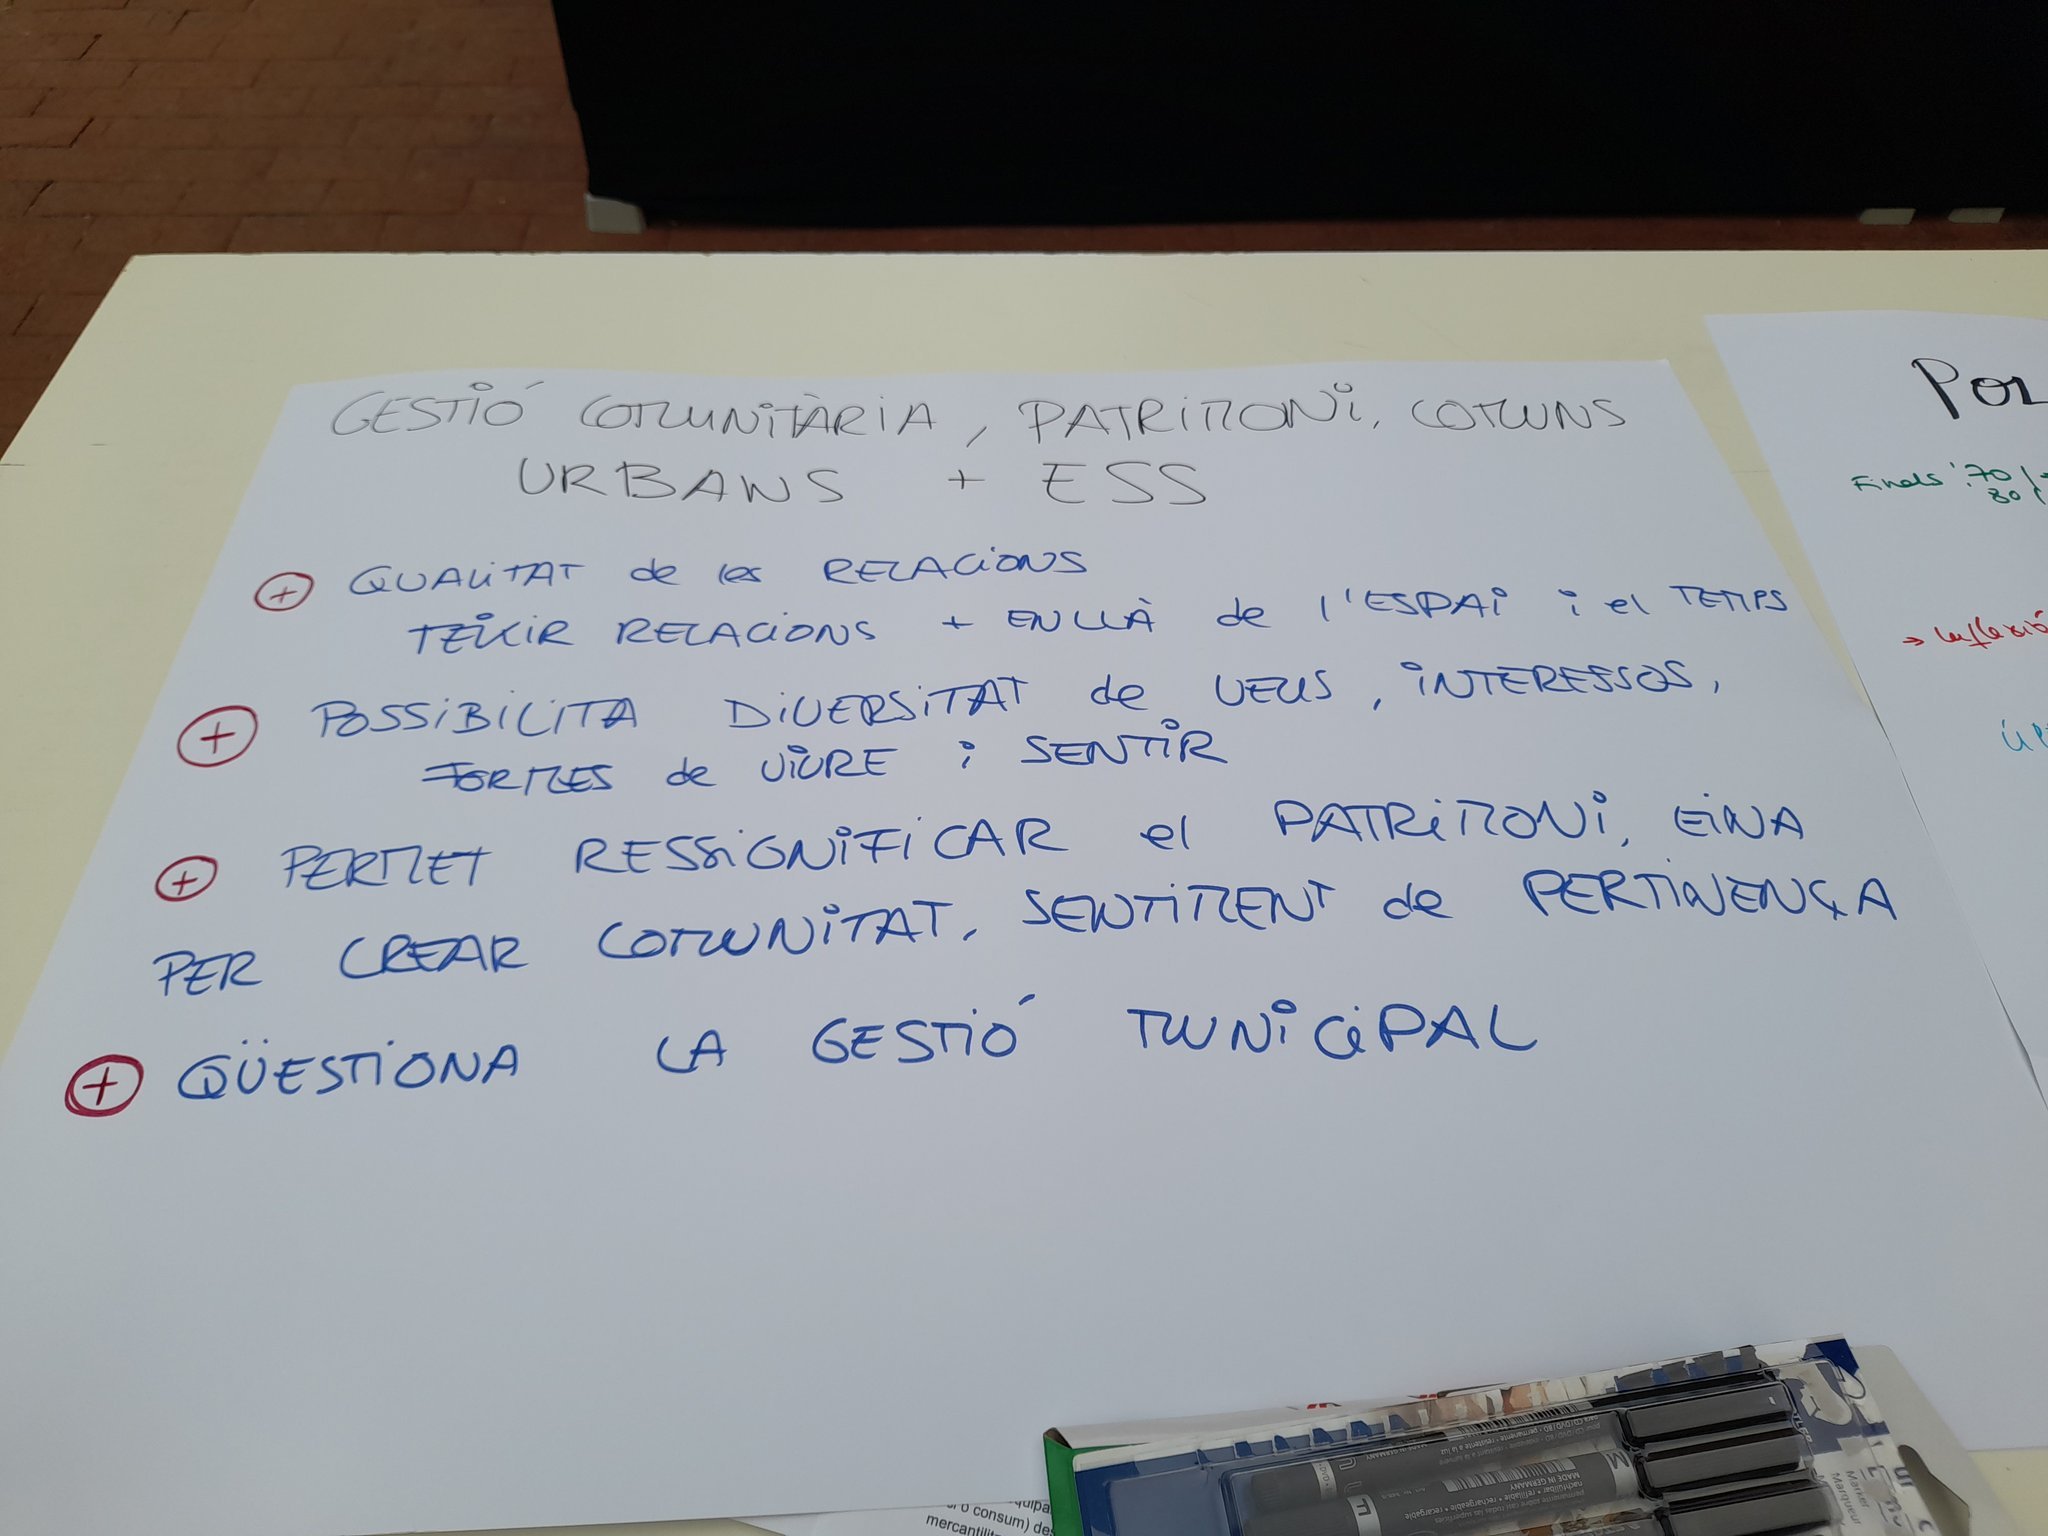 GESTIÓ COMUNITÀRIA, PATRIMONI, COMUNS
URBANS + ESS
+ QUALITAT de les RELACIONS
TEIXIR RELACIONS + ENLLÀ de l'ESPAI i el TEMPS
+ POSSIBILITA DIVERSITAT de VEUS, INTERESSOS,
FORMES de VIURE i SENTIR
+ PERMET RESSIGNIFICAR el PATRIMONI, EINA
PER CREAR COMUNITAT, SENTIMENT de PERTINENÇA
+ QÜESTIONA LA GESTIÓ MUNICIPAL
Finals '70
80
→ Inflexió
MADE IN GERMANY
nachfüllbar • refillable • rechargeable • recargable
Marker
Marqueur
o consum) des